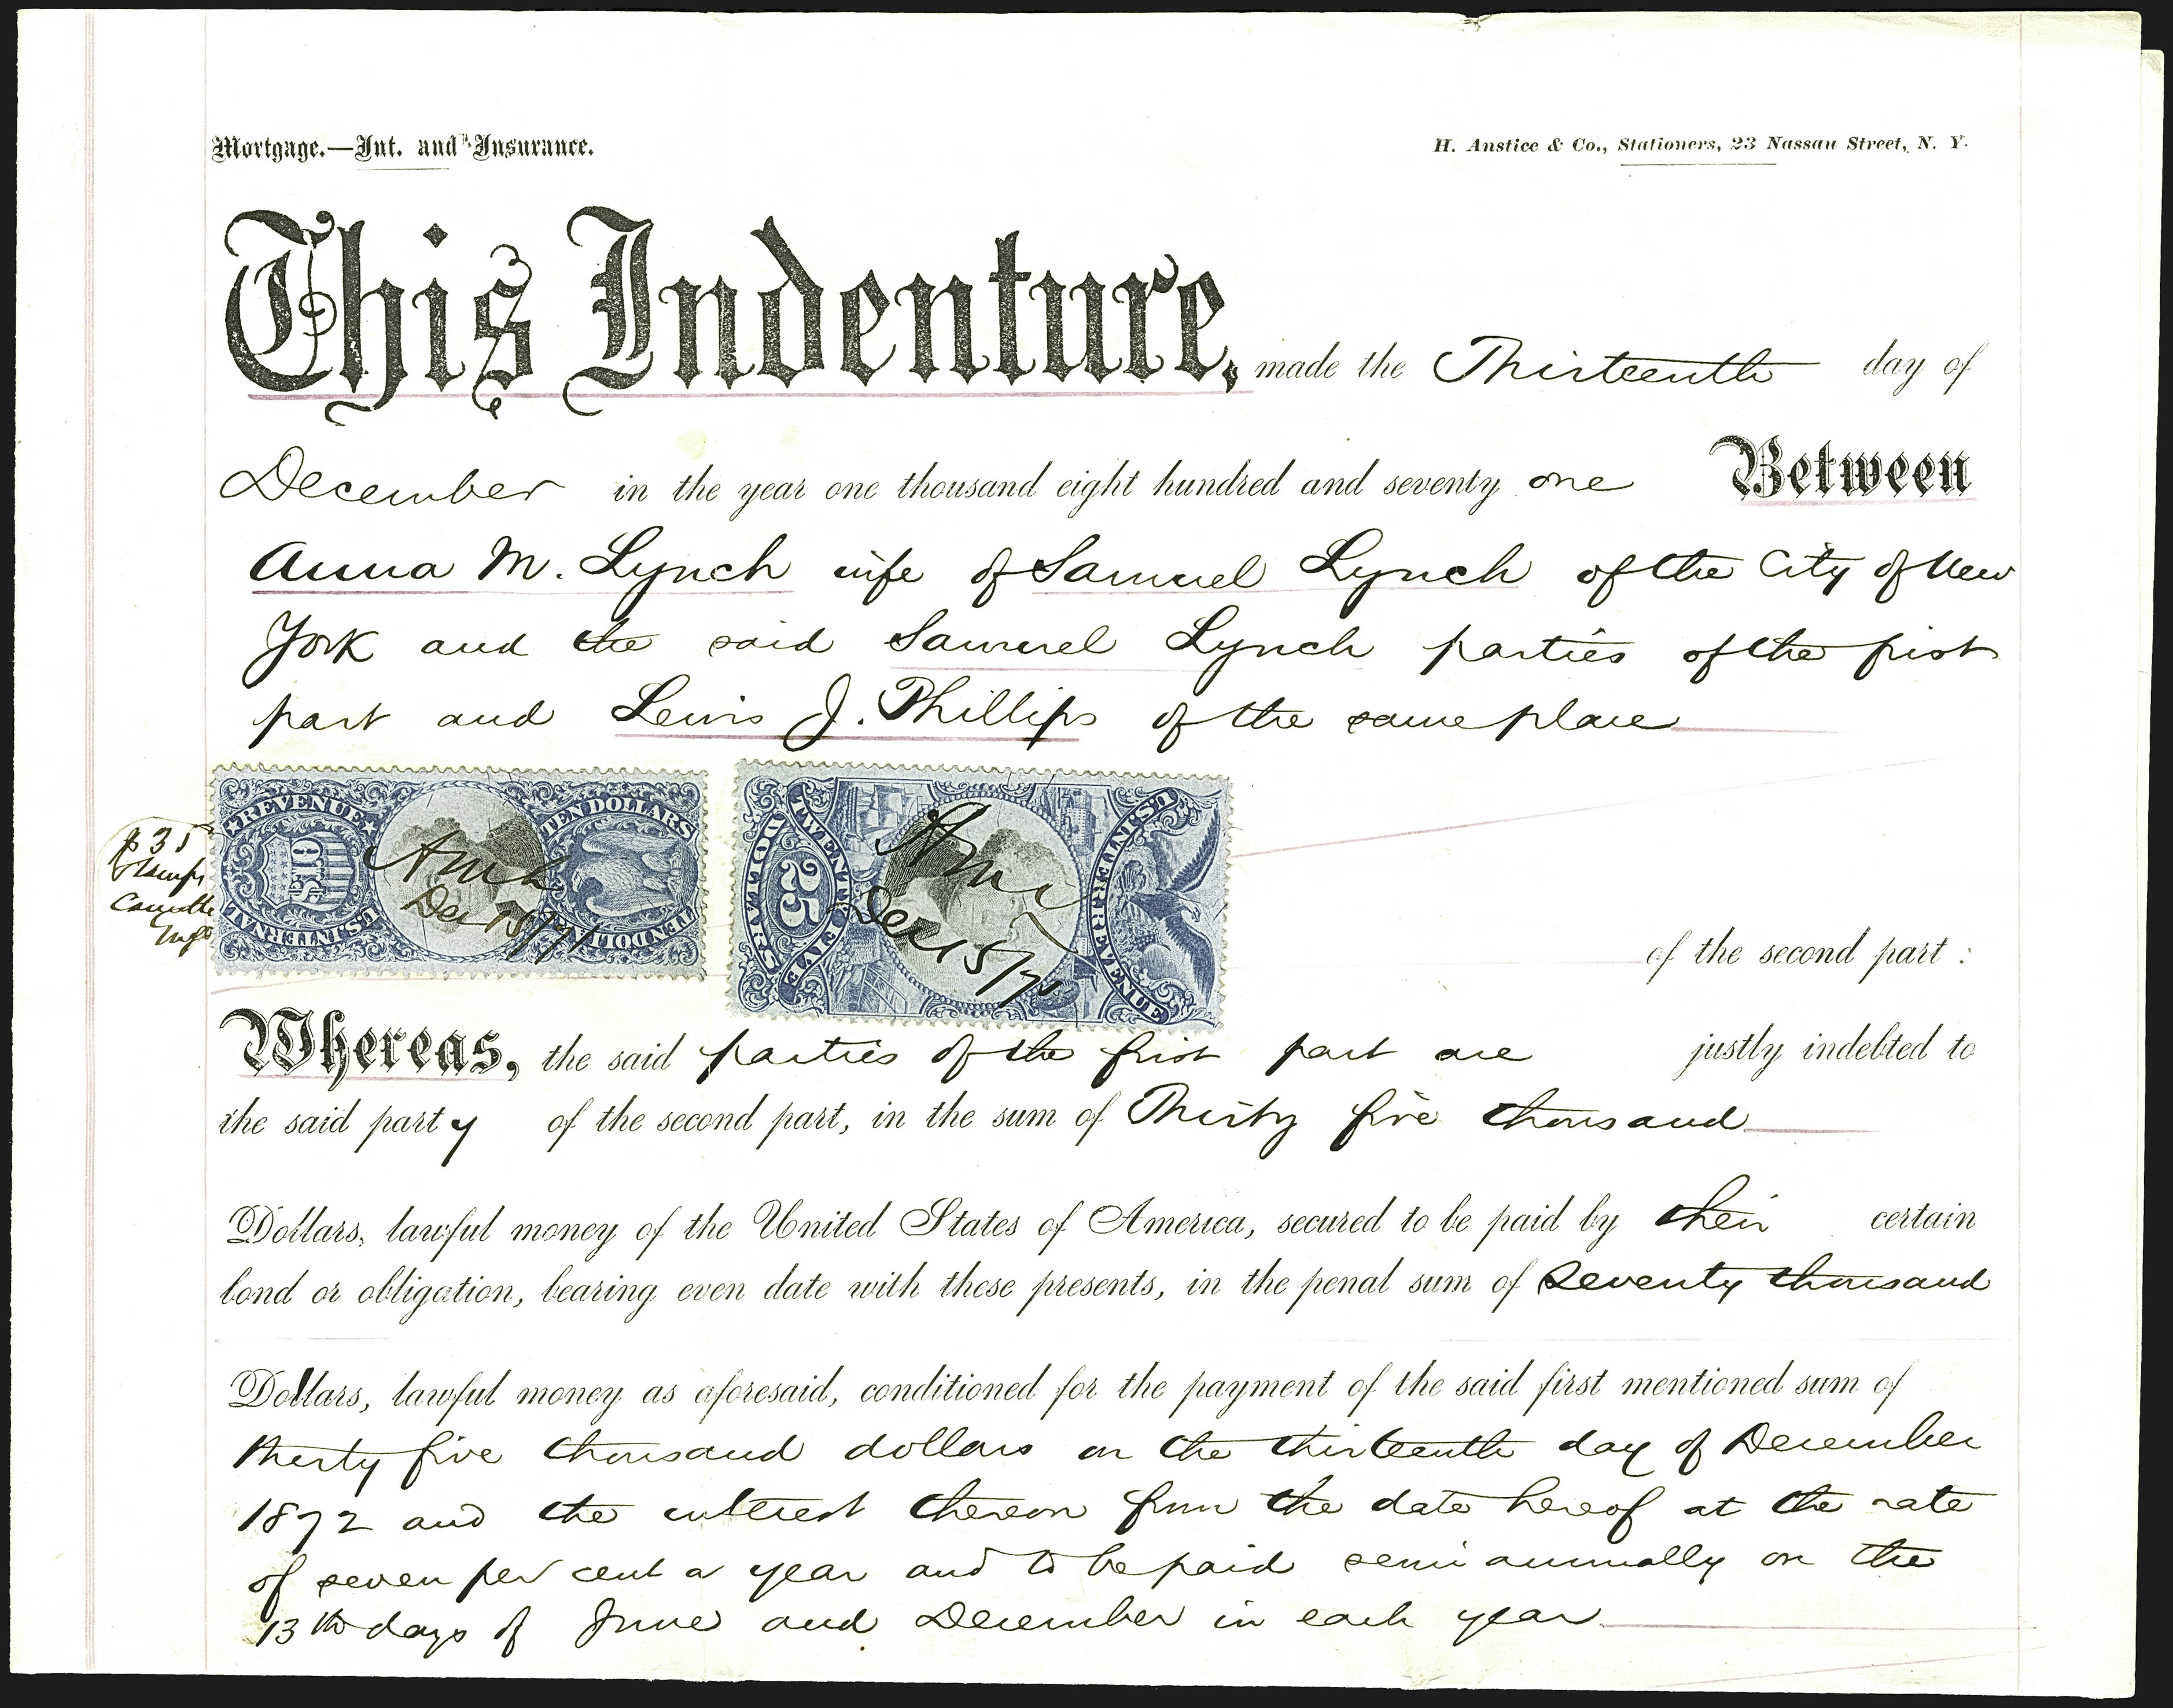 Mortgage.—Int. and Insurance.
H. Anstice & Co., Stationers, 23 Nassau Street, N. Y.
This Indenture, made the Thirteenth day of
December in the year one thousand eight hundred and seventy one Between
Anna M. Lynch wife of Samuel Lynch of the City of New
York and the said Samuel Lynch parties of the first
part and Lewis J. Phillips of the same place
$35
Stamps
REVENUE
TEN DOLLARS
$10
U.S. INTER. NAL
TEN DOLLARS
AML
Dec 13/71
TWENTY FIVE
DOLLARS
25
U.S. INTER. REVENUE
AML
Dec 13/71
of the second part:
Whereas, the said parties of the first part are justly indebted to
the said party of the second part, in the sum of Thirty five thousand
Dollars, lawful money of the United States of America, secured to be paid by their certain
bond or obligation, bearing even date with these presents, in the penal sum of Seventy thousand
Dollars, lawful money as aforesaid, conditioned for the payment of the said first mentioned sum of
thirty five thousand dollars on the thirteenth day of December
1872 and the interest thereon from the date hereof at the rate
of seven per cent a year and to be paid semi annually on the
13th days of June and December in each year